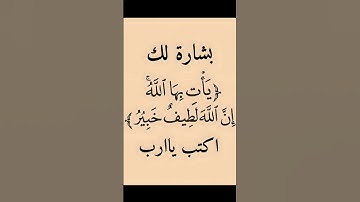 بشارة لك
﴿يَأْتِ بِهَا ٱللَّهُۚ
إِنَّ ٱللَّهَ لَطِيفٌ خَبِيْرٌ﴾
اكتب ياارب